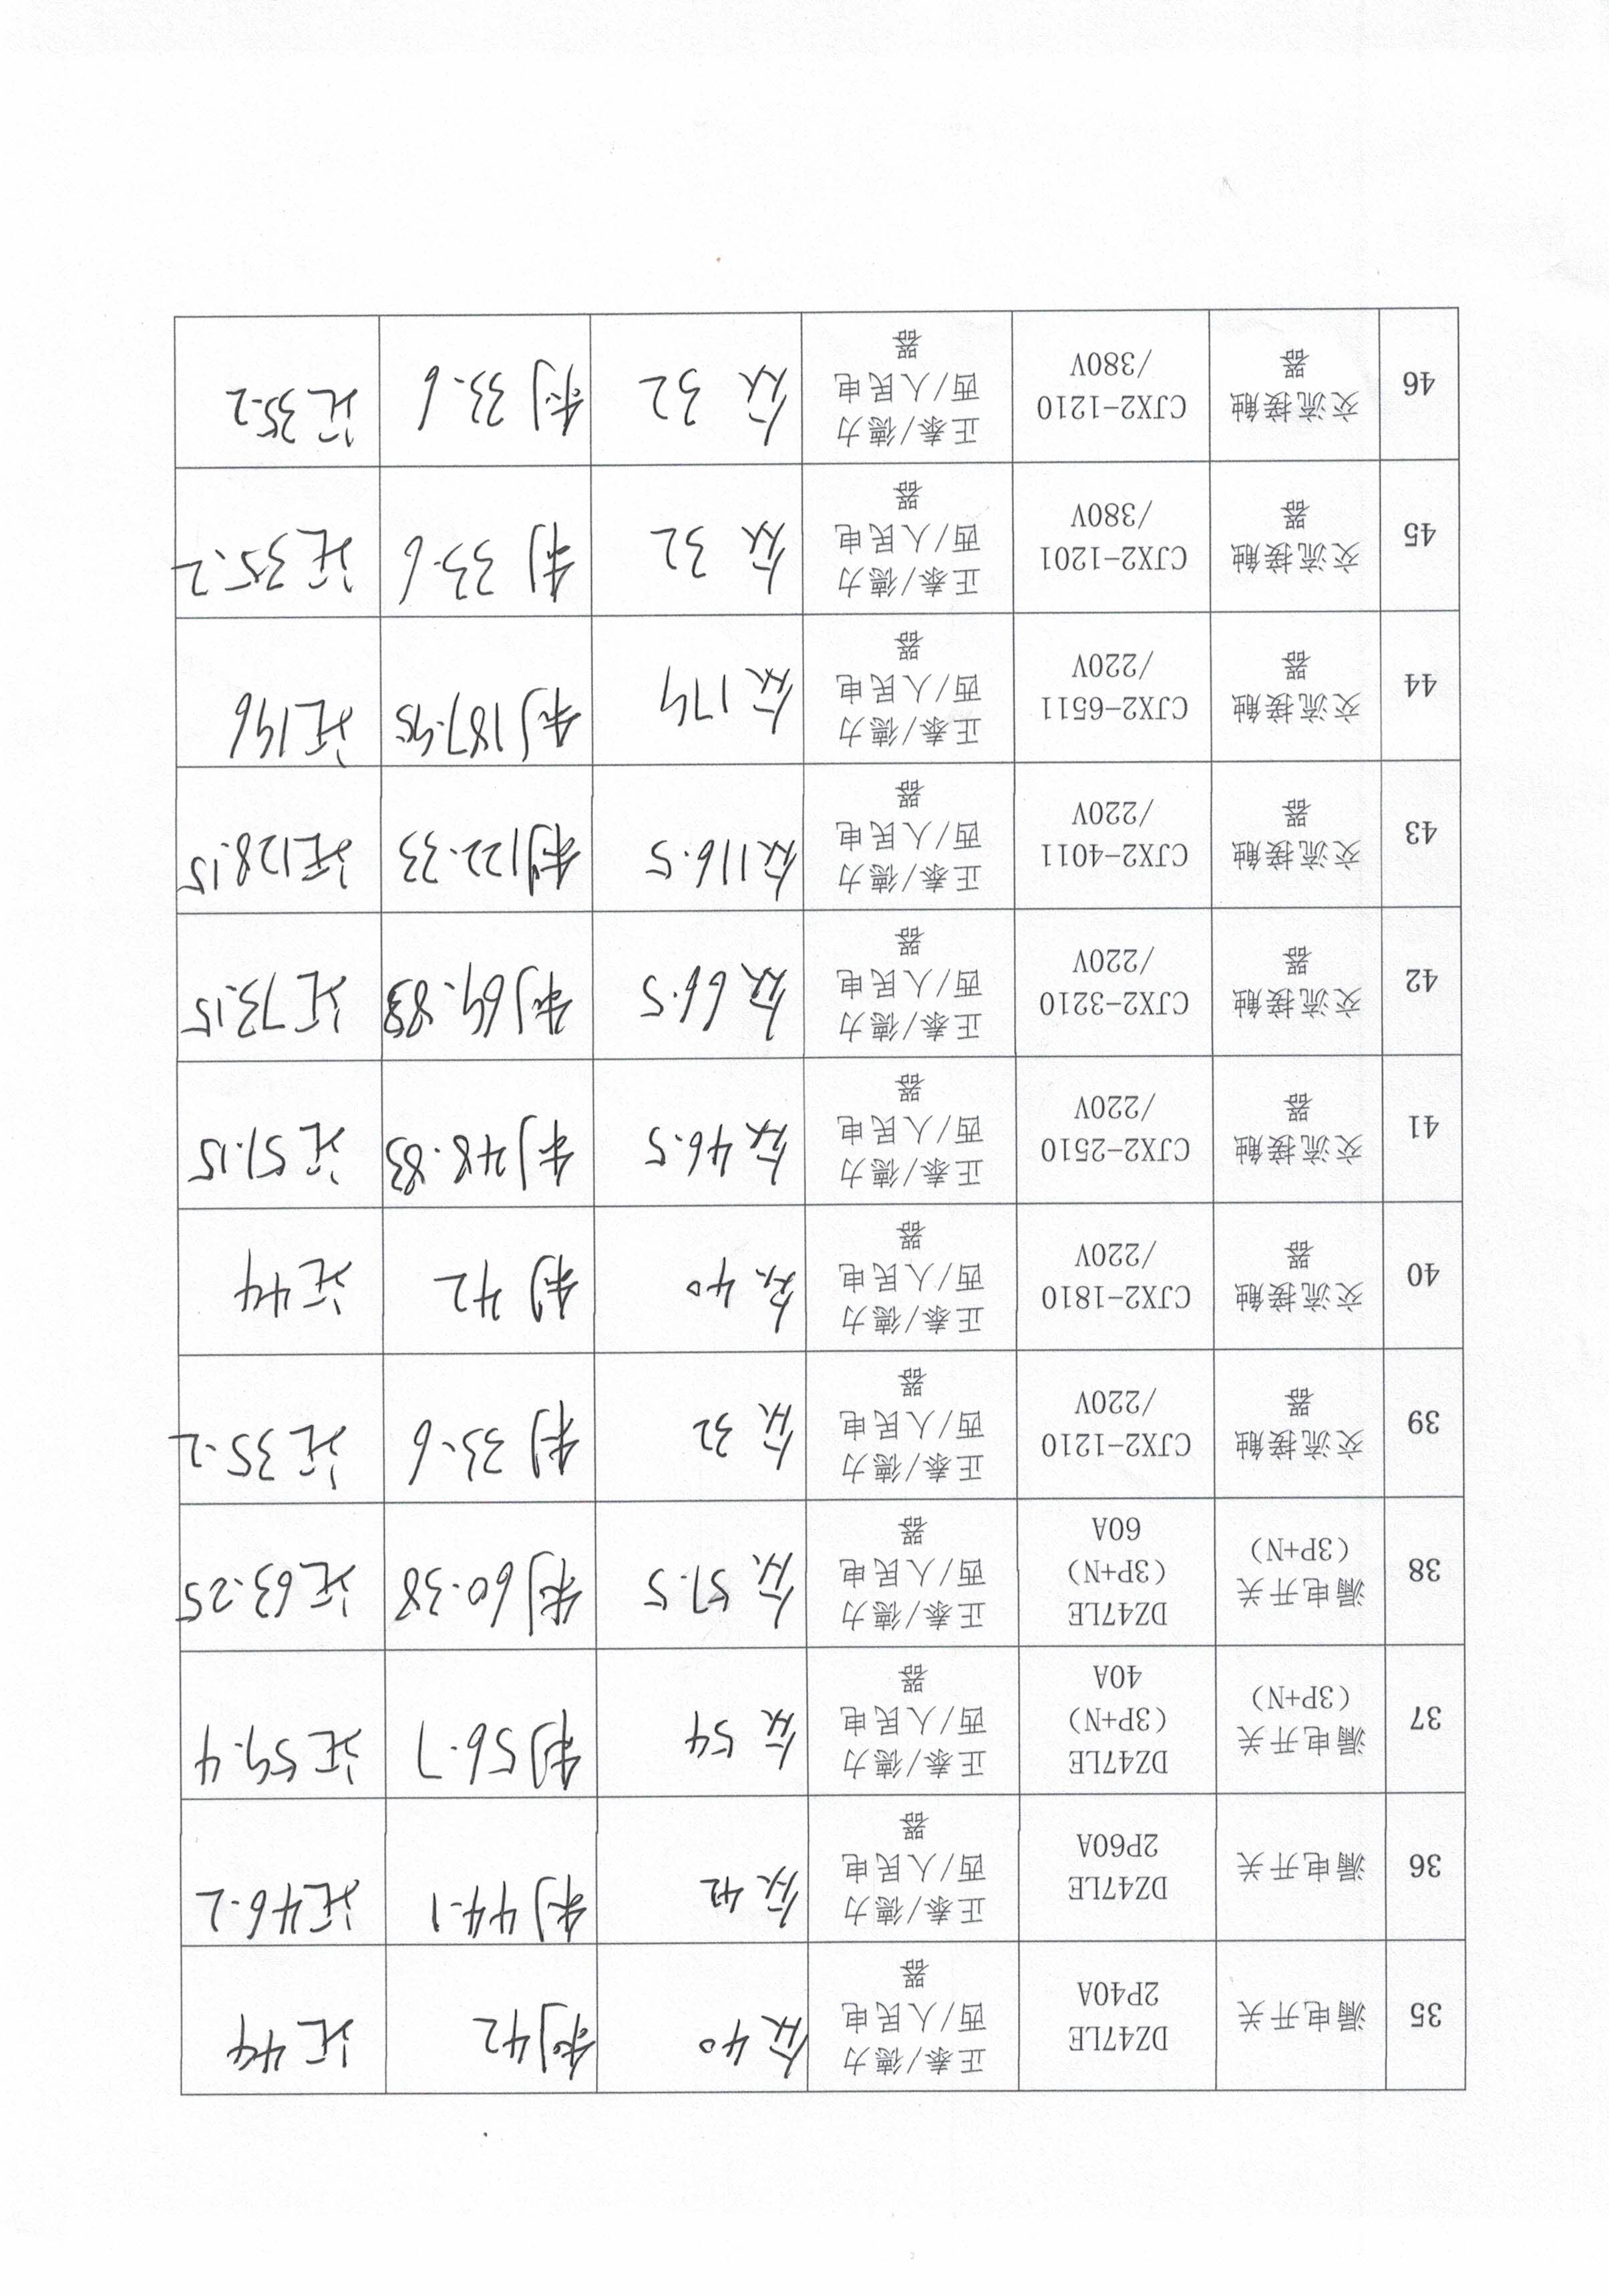 35
漏电开关
DZ47LE
2P40A
正泰/德力
西/人民电
器
众 40
利 42
汇 44
36
漏电开关
DZ47LE
2P60A
正泰/德力
西/人民电
器
众 42
利 44.1
汇 46.2
37
漏电开关
(3P+N)
DZ47LE
(3P+N)
40A
正泰/德力
西/人民电
器
众 54
利 56.7
汇 59.4
38
漏电开关
(3P+N)
DZ47LE
(3P+N)
60A
正泰/德力
西/人民电
器
众 57.5
利 60.38
汇 63.25
39
交流接触
器
CJX2-1210
/220V
正泰/德力
西/人民电
器
众 32
利 33.6
汇 35.2
40
交流接触
器
CJX2-1810
/220V
正泰/德力
西/人民电
器
众 40
利 42
汇 44
41
交流接触
器
CJX2-2510
/220V
正泰/德力
西/人民电
器
众 46.5
利 48.83
汇 51.15
42
交流接触
器
CJX2-3210
/220V
正泰/德力
西/人民电
器
众 66.5
利 69.83
汇 73.15
43
交流接触
器
CJX2-4011
/220V
正泰/德力
西/人民电
器
众 116.5
利 122.33
汇 128.15
44
交流接触
器
CJX2-6511
/220V
正泰/德力
西/人民电
器
众 179
利 187.95
汇 196
45
交流接触
器
CJX2-1201
/380V
正泰/德力
西/人民电
器
众 32
利 33.6
汇 35.2
46
交流接触
器
CJX2-1210
/380V
正泰/德力
西/人民电
器
众 32
利 33.6
汇 35.2